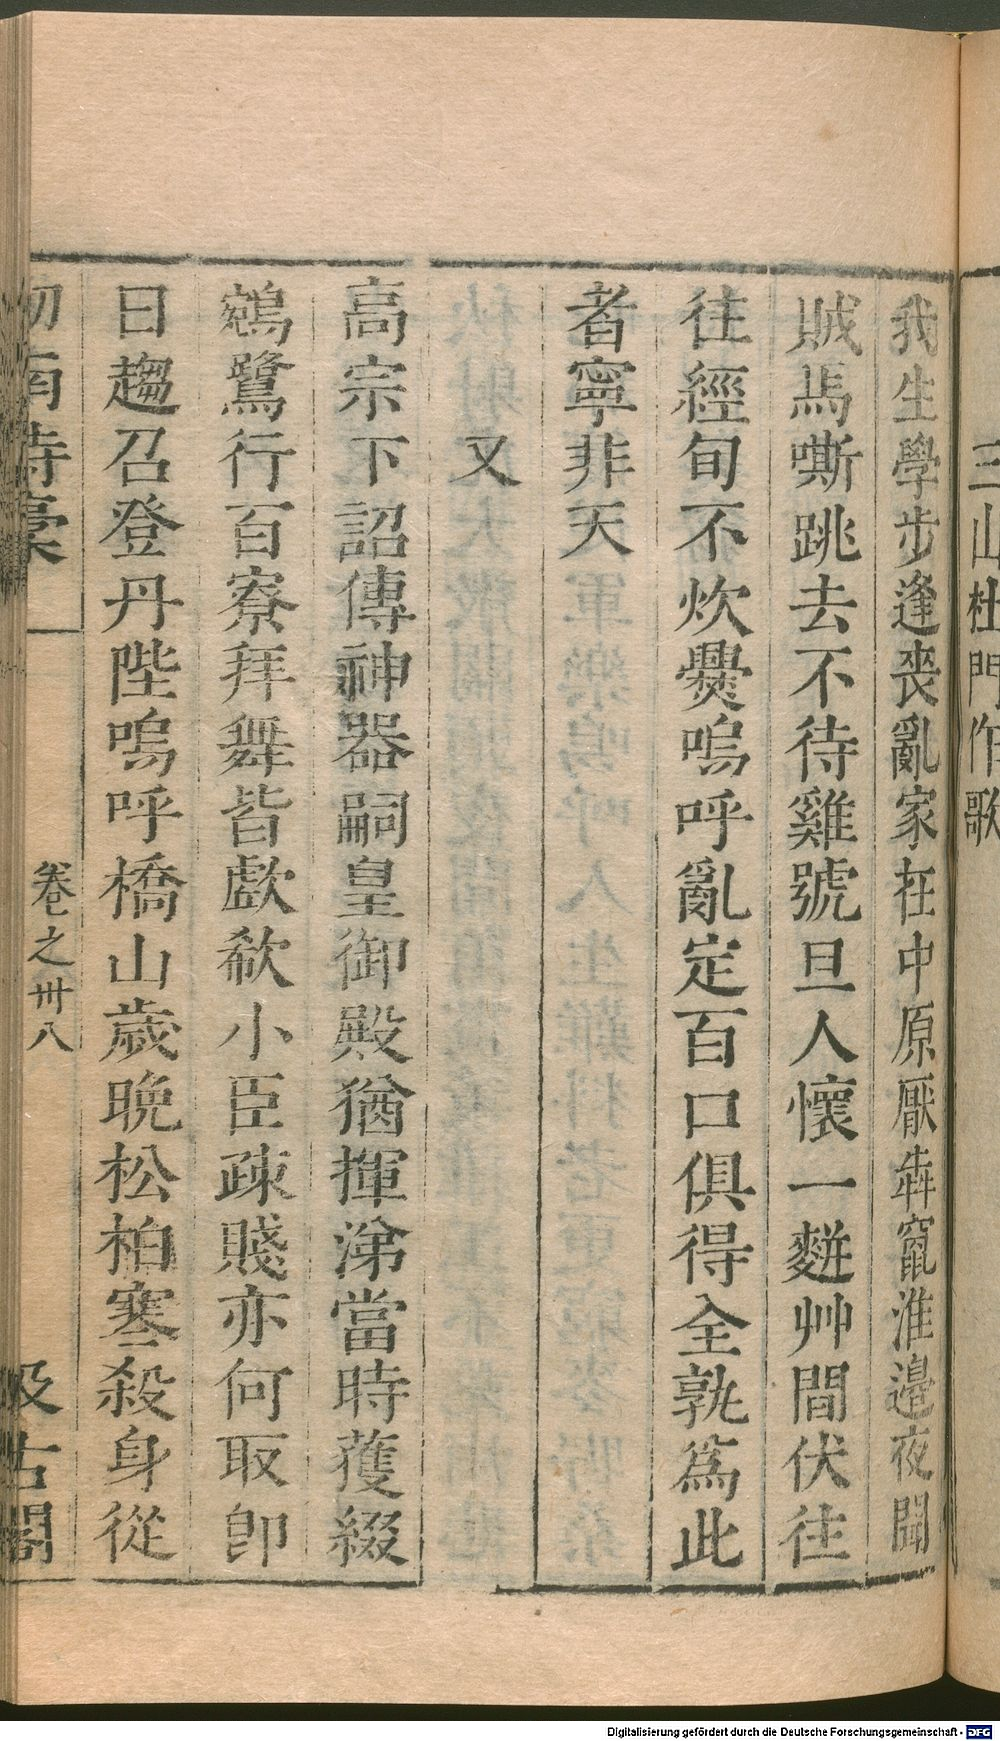 三山杜門作歌
我生學步逢喪亂家在中原厭犇竄淮邊夜聞
賊馬嘶跳去不待雞號旦人懷一䴵艸間伏往
往經旬不炊爨嗚呼亂定百口俱得全孰為此
者寧非天
又
高宗下詔傳神器嗣皇御殿猶揮涕當時獲綴
鵷鷺行百寮拜舞皆歔欷小臣疎賤亦何取即
日趨召登丹陛嗚呼橋山歲晚松柏寒殺身從
劎南詩稾 卷之卅八 汲古閣
Digitalisierung gefördert durch die Deutsche Forschungsgemeinschaft - DFG